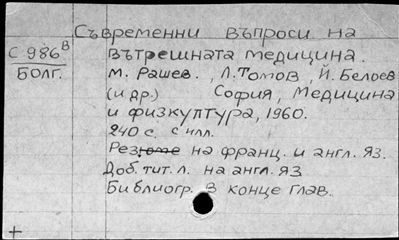 Съвременни въпроси на
С 986в
вътрешната медицина.
БОЛГ.
М. Рашев., Л. Томов, Й. Белоев
(и др.) София, Медицина
и физкултура, 1960.
240 с. с илл.
Резюме на франц. и англ. яз.
Доб. тит. л. на англ. яз
Библиогр. в конце глав.